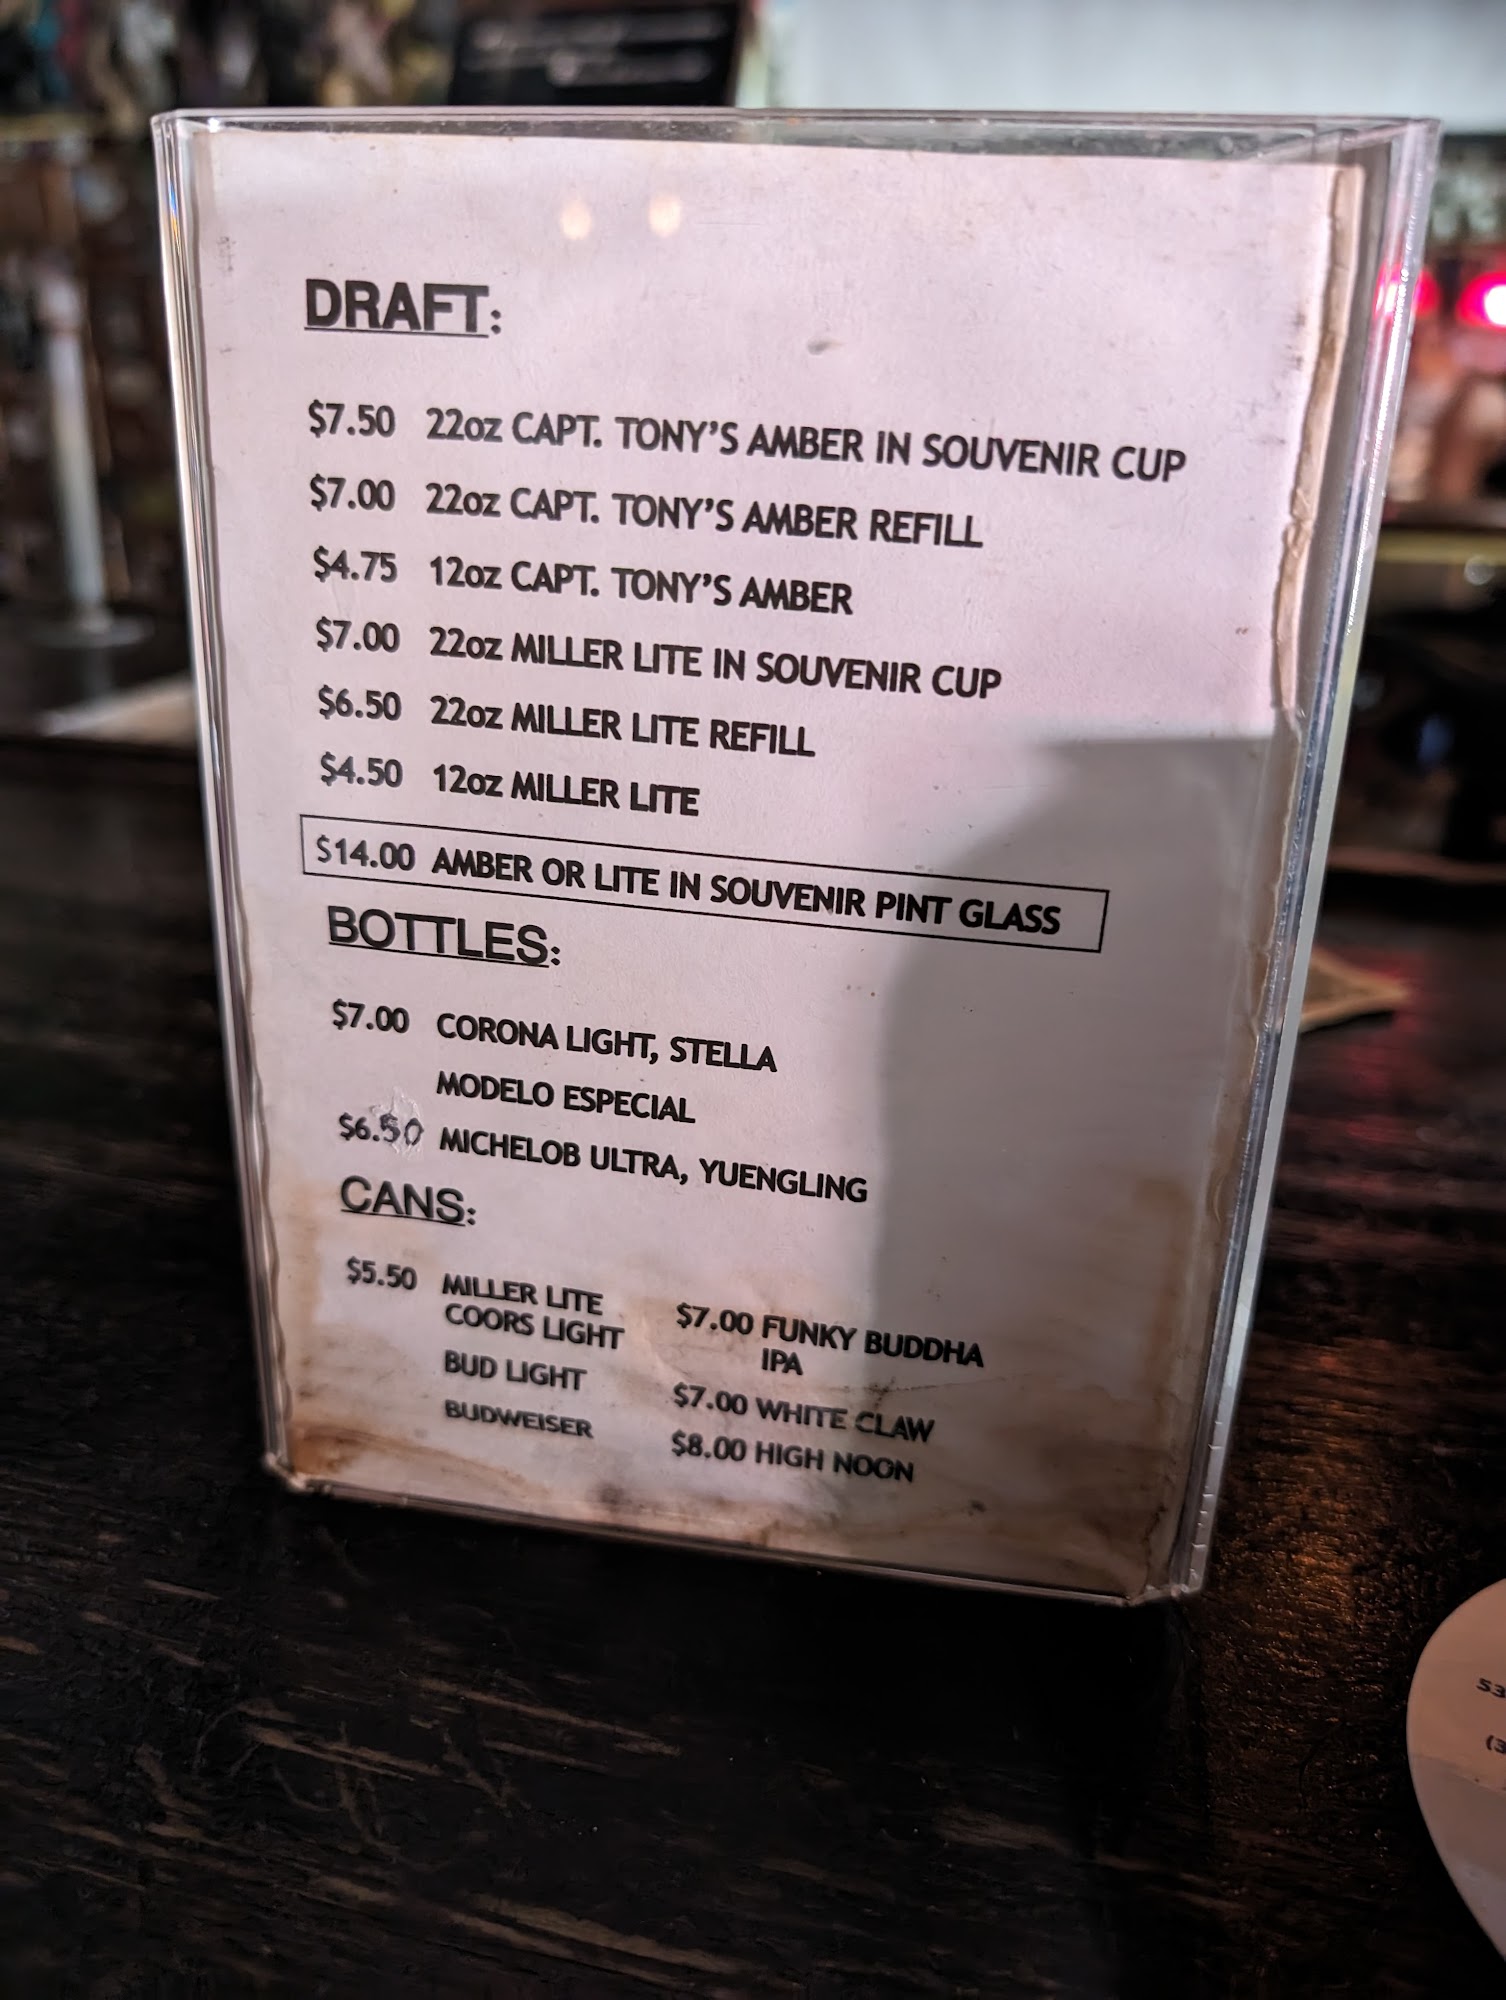 DRAFT:
$7.50 22oz CAPT. TONY'S AMBER IN SOUVENIR CUP
$7.00 22oz CAPT. TONY'S AMBER REFILL
$4.75 12oz CAPT. TONY'S AMBER
$7.00 22oz MILLER LITE IN SOUVENIR CUP
$6.50 22oz MILLER LITE REFILL
$4.50 12oz MILLER LITE
$14.00 AMBER OR LITE IN SOUVENIR PINT GLASS
BOTTLES:
$7.00 CORONA LIGHT, STELLA
MODELO ESPECIAL
$6.50 MICHELOB ULTRA, YUENGLING
CANS:
$5.50 MILLER LITE
COORS LIGHT
BUD LIGHT
BUDWEISER
$7.00 FUNKY BUDDHA
IPA
$7.00 WHITE CLAW
$8.00 HIGH NOON
53
(3